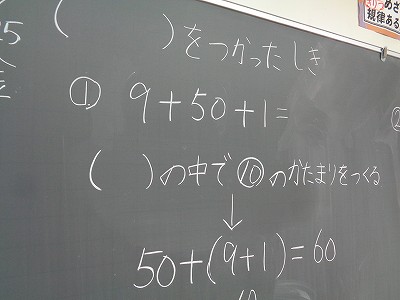 (　　)をつかったしき
① 9+50+1=
(　)の中で⑩のかたまりをつくる
↓
50+(9+1)=60
10
25
②
めざ
規律ある